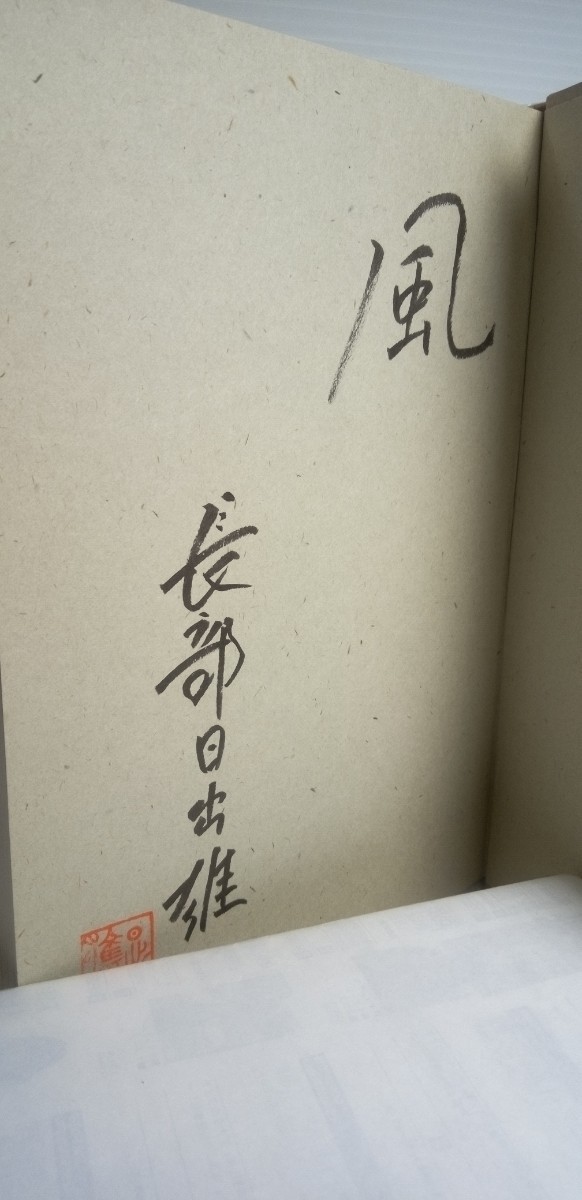 風
長部日出雄